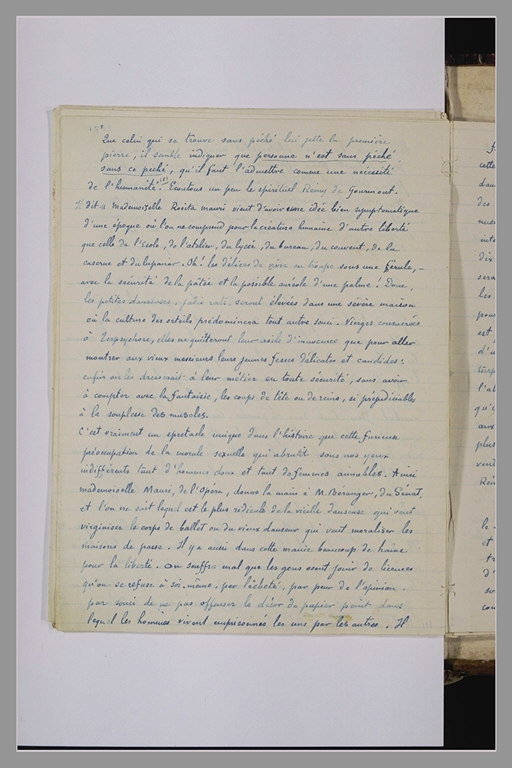 Que celui qui se trouve sans péché lui jette la première
pierre, il semble indiquer que personne n'est sans péché
sans ce péché, qu'il faut l'admettre comme une nécessité
de l'humanité. Ecoutons un peu le spirituel Remy de Gourmont.
dit-il Mademoiselle Rosita Mauri vient d'avoir une idée bien symptomatique
d'une époque où l'on ne comprend pour la créature humaine d'autre liberté
que celle de l'Ecole, de l'atelier, du lycée, du bureau, du couvent, de la
caserne et du lupanar. Oh! les délices de vivre en troupe sous une férule,
avec la sécurité de la pâtée et la possible auréole d'une palme! Donc,
les petites danseuses, jadis rats, seront élevées dans une sévère maison
où la culture des orteils prédominera tout autre souci. Vierges consacrées
à Terpsychore, elles ne quitteront leur asile d'innocence que pour aller
montrer aux vieux messieurs leurs jeunes fesses délicates et candides;
enfin on les dresserait à leur métier en toute sécurité, sans avoir
à compter avec la fantaisie, les coups de tête ou de reins, si préjudiciables
à la souplesse des muscles.
C'est vraiment un spectacle unique dans l'histoire que cette furieuse
préoccupation de la morale sexuelle qui abrutit sous nos yeux
indifférents tant d'hommes doux et tant de femmes aimables. Ainsi
mademoiselle Mauri, de l'Opera, donne la main à M. Beranger, du Sénat,
et l'on ne sait lequel est le plus ridicule de la vieille danseuse qui veut
virginiser le corps de ballet ou du vieux danseur qui veut moraliser les
maisons de passe. Il y a aussi dans cette manie beaucoup de haine
pour la liberté. On souffre mal que les gens osent jouir de licences
qu'on se refuse à soi-même, par lâcheté, par peur de l'opinion,
par souci de ne pas offenser le décor de papier peint dans
lequel les hommes vivent emprisonnés les uns par les autres. Il